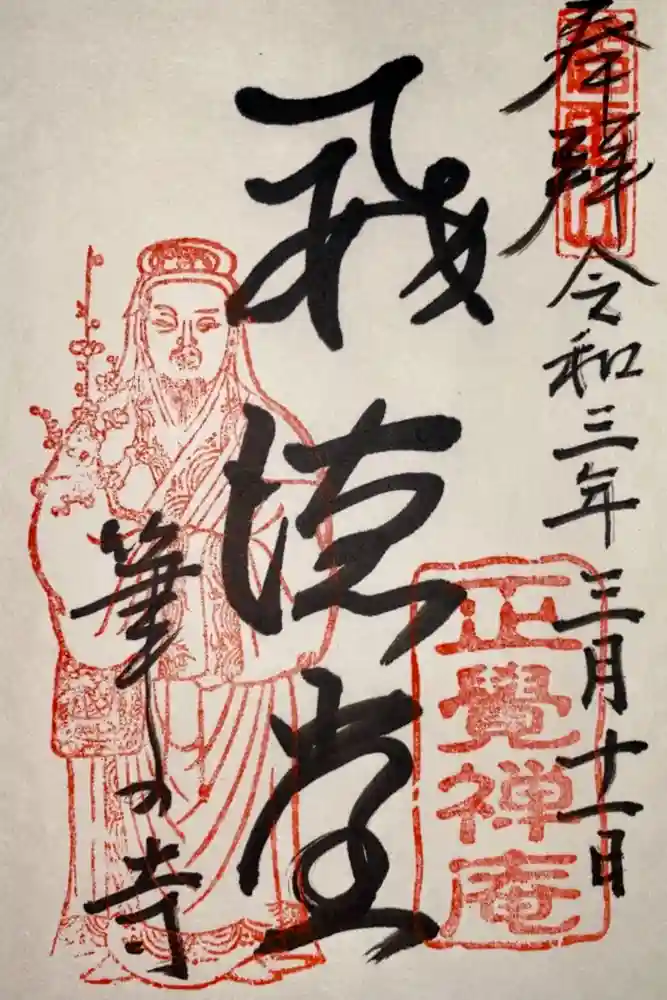 奉拝 令和三年三月十一日
徳堂
筆の寺
正覺禅庵